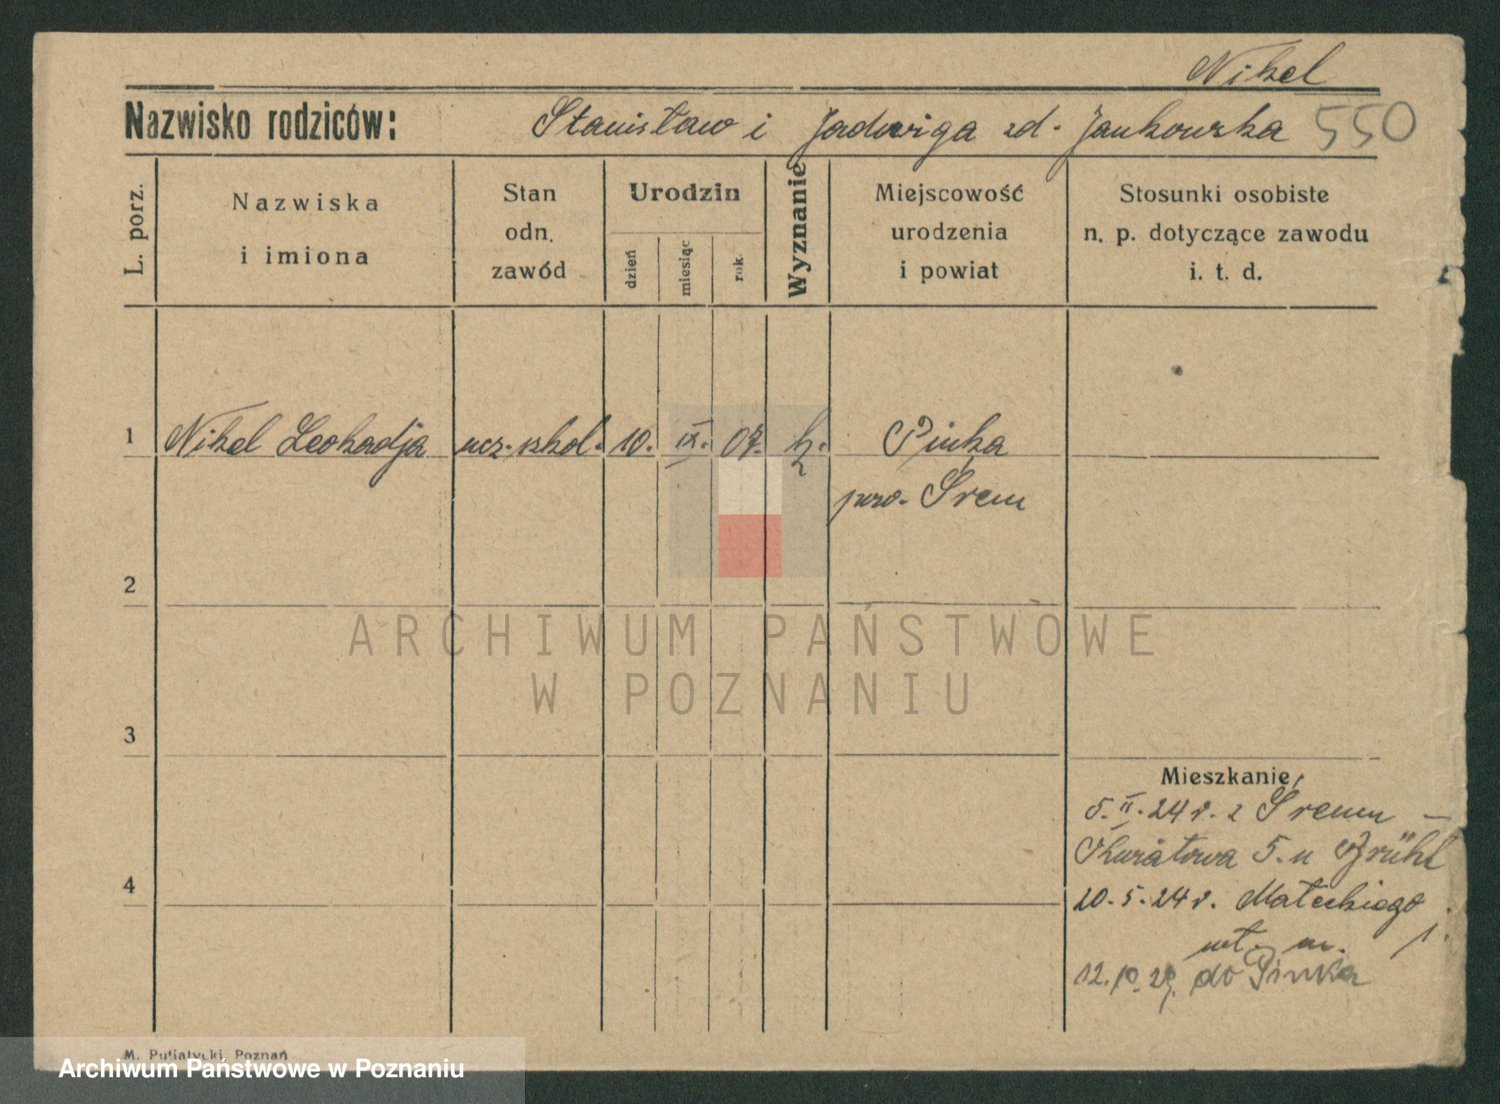 Nikel
Nazwisko rodziców: Stanisław i Jadwiga zd. Jankowska 550
L. porz.
Nazwiska
i imiona
Stan
odn.
zawód
Urodzin
dzień
miesiąc
rok.
Wyznanie
Miejscowość
urodzenia
i powiat
Stosunki osobiste
n. p. dotyczące zawodu
i. t. d.
1 Nikel Leokadja ucz. szkol. 10. IX. 07. k. Pinka
pow. Śrem
2
ARCHIWUM PAŃSTWOWE
W POZNANIU
3
Mieszkanie
5. II. 24 r. z Śremu –
Kwiatowa 5. u Brühl
4
20. 5. 24 r. Małeckiego
12. 10. do Pinka
M. Putiatycki, Poznań
Archiwum Państwowe w Poznaniu